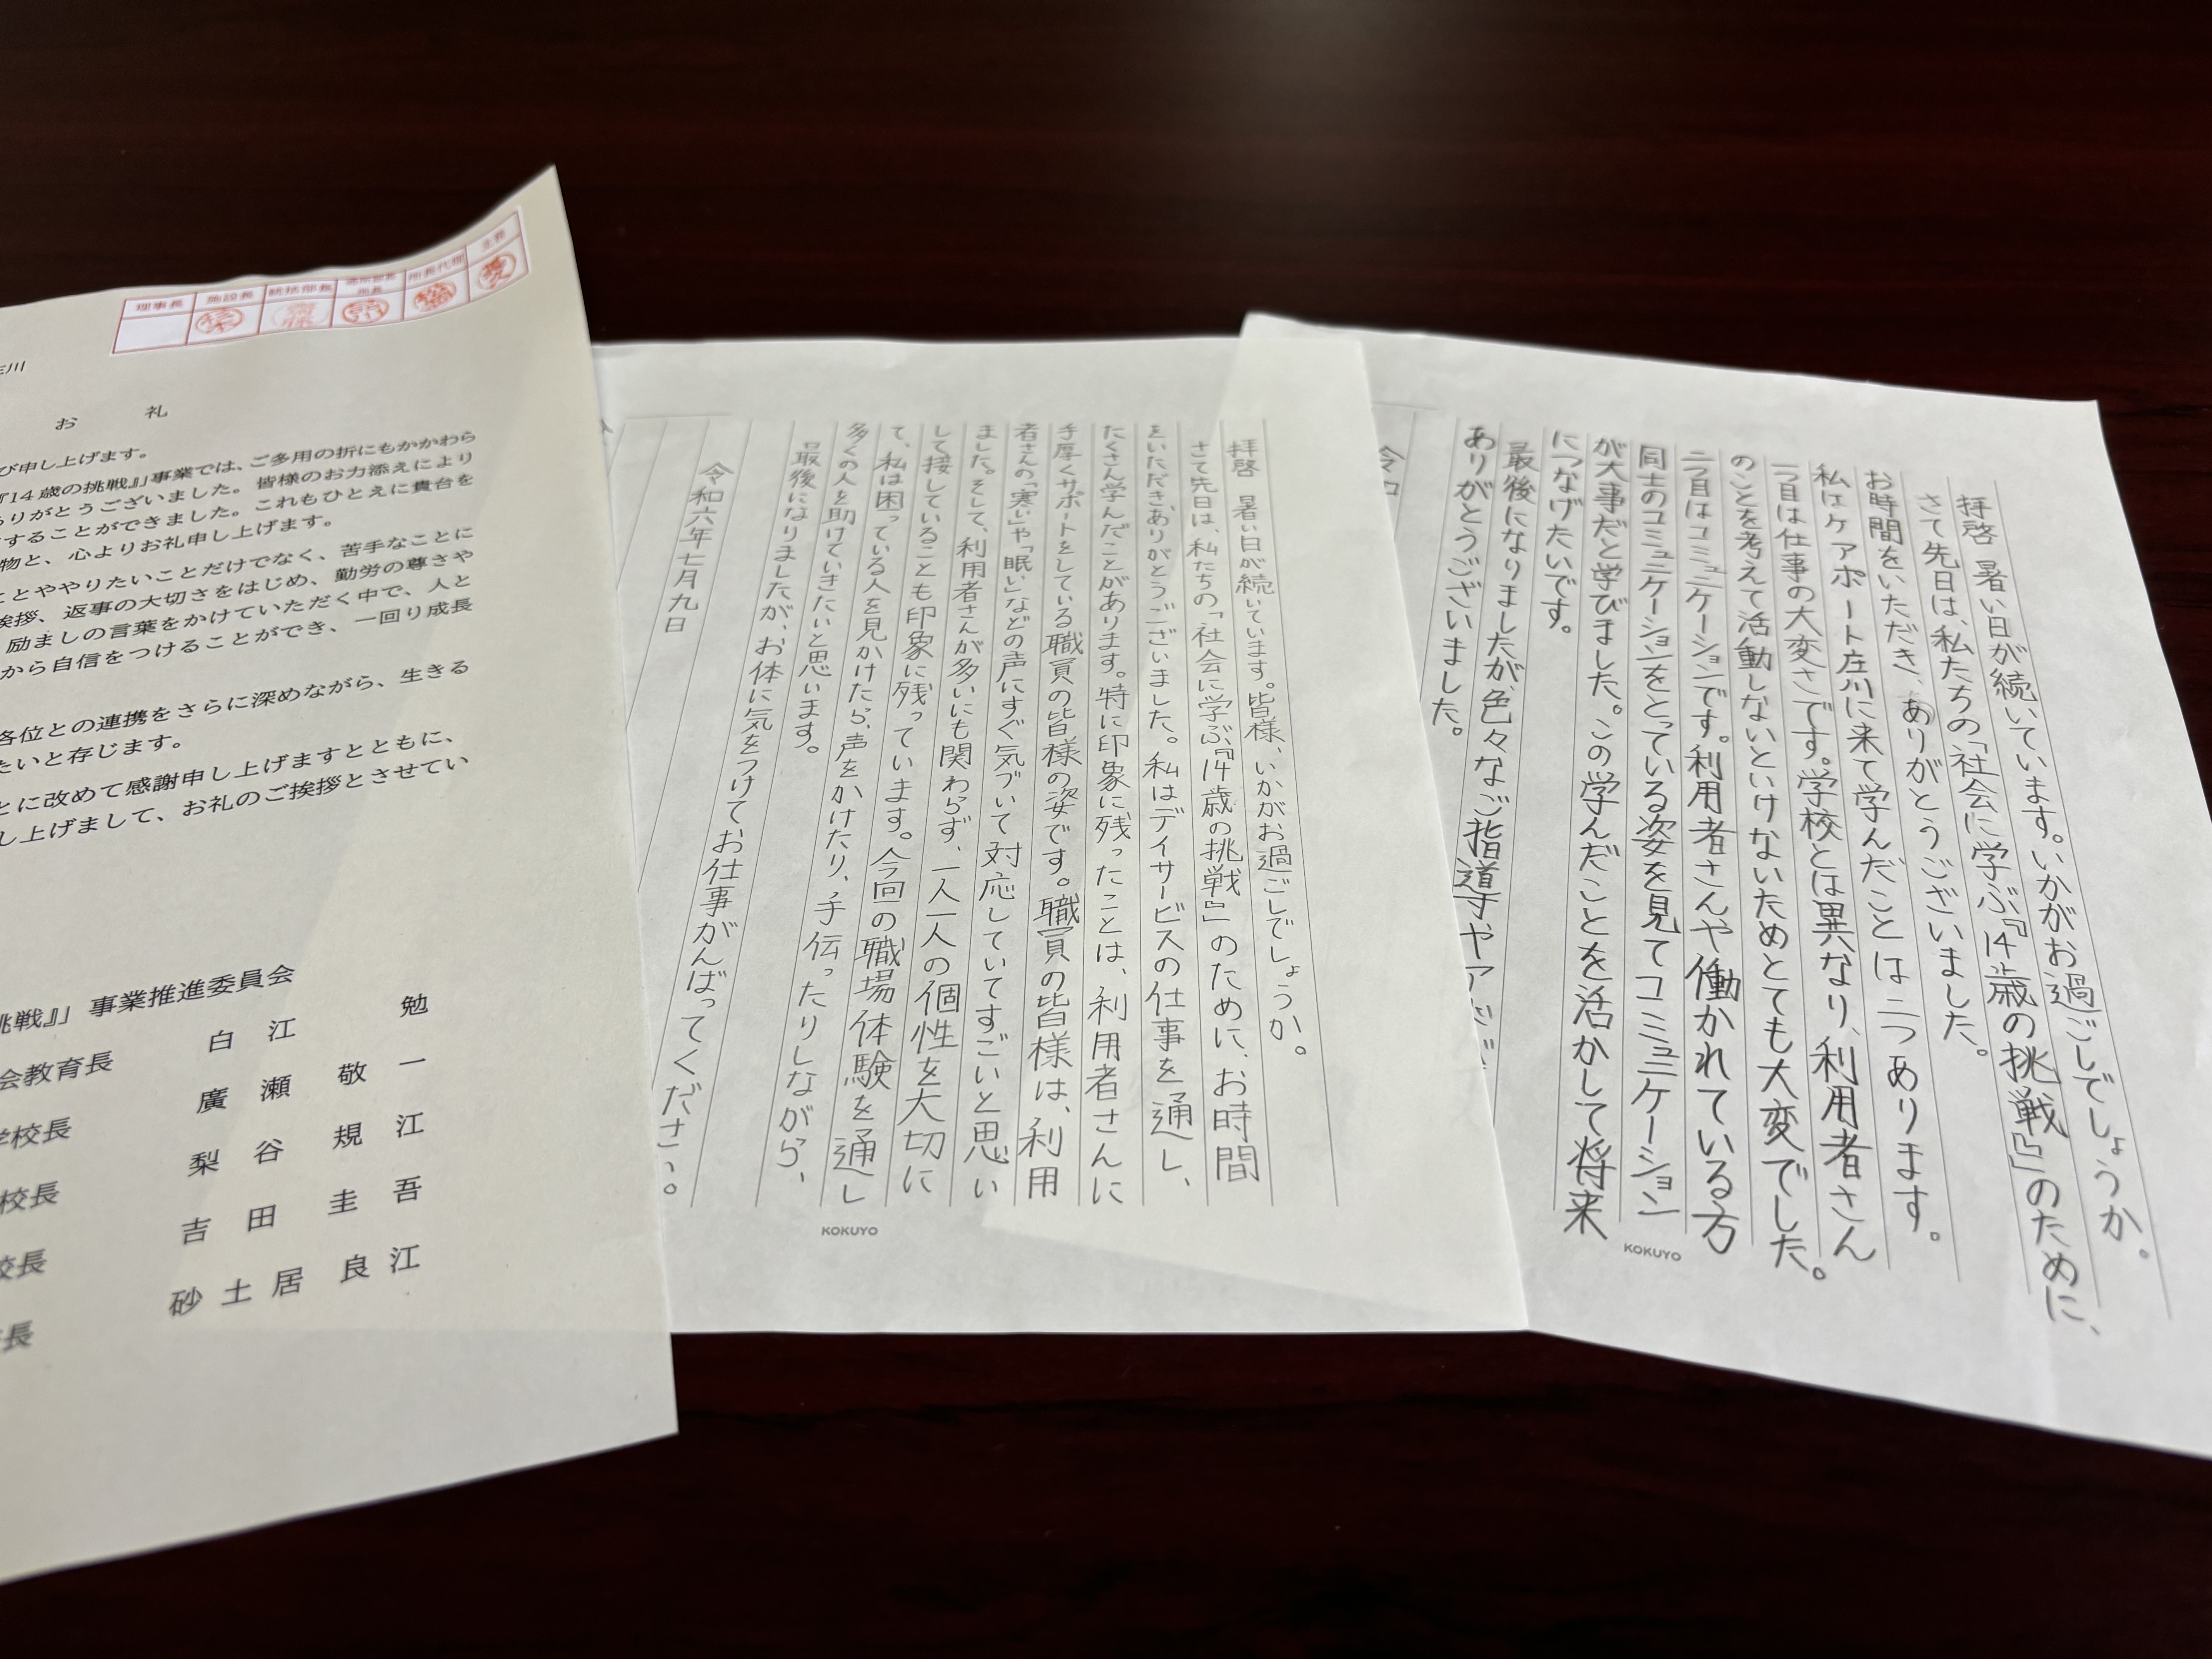 理事長
施設長
統括部長
所長
所長代理
主務
お礼
び申し上げます。
『14歳の挑戦』」事業では、ご多用の折にもかかわら
りがとうございました。皆様のお力添えにより
することができました。これもひとえに貴台を
物と、心よりお礼申し上げます。
ことややりたいことだけでなく、苦手なことに
挨拶、返事の大切さをはじめ、勤労の尊さや
励ましの言葉をかけていただく中で、人と
から自信をつけることができ、一回り成長
各位との連携をさらに深めながら、生きる
たいと存じます。
とに改めて感謝申し上げますとともに、
し上げまして、お礼のご挨拶とさせてい
挑戦』」事業推進委員会
会教育長 白江 勉
学校長 廣瀬 敬一
校長 梨谷 規江
校長 吉田 圭吾
長 砂土居 良江
拝啓 暑い日が続いています。皆様、いかがお過ごしでしょうか。
さて先日は、私たちの「社会に学ぶ『14歳の挑戦』」のために、お時間
をいただき、ありがとうございました。私はデイサービスの仕事を通し、
たくさん学んだことがあります。特に印象に残ったことは、利用者さんに
手厚くサポートをしている職員の皆様の姿です。職員の皆様は、利用
者さんの「寒い」や「眠い」などの声にすぐ気づいて対応していてすごいと思い
ました。そして、利用者さんが多いにも関わらず、一人一人の個性を大切に
して接していることも印象に残っています。今回の職場体験を通し
て、私は困っている人を見かけたら、声をかけたり、手伝ったりしながら、
多くの人を助けていきたいと思います。
最後になりましたが、お体に気をつけてお仕事がんばってください。
令和六年七月九日
KOKUYO
拝啓 暑い日が続いています。いかがお過ごしでしょうか。
さて先日は、私たちの「社会に学ぶ『14歳の挑戦』」のために、
お時間をいただき、ありがとうございました。
私はケアポート庄川に来て学んだことは二つあります。
一つ目は仕事の大変さです。学校とは異なり、利用者さん
のことを考えて活動しないといけないためとても大変でした。
二つ目はコミュニケーションです。利用者さんや働かれている方
同士のコミュニケーションをとっている姿を見てコミュニケーション
が大事だと学びました。この学んだことを活かして将来
につなげたいです。
最後になりましたが、色々なご指導やアド
ありがとうございました。
令和
KOKUYO